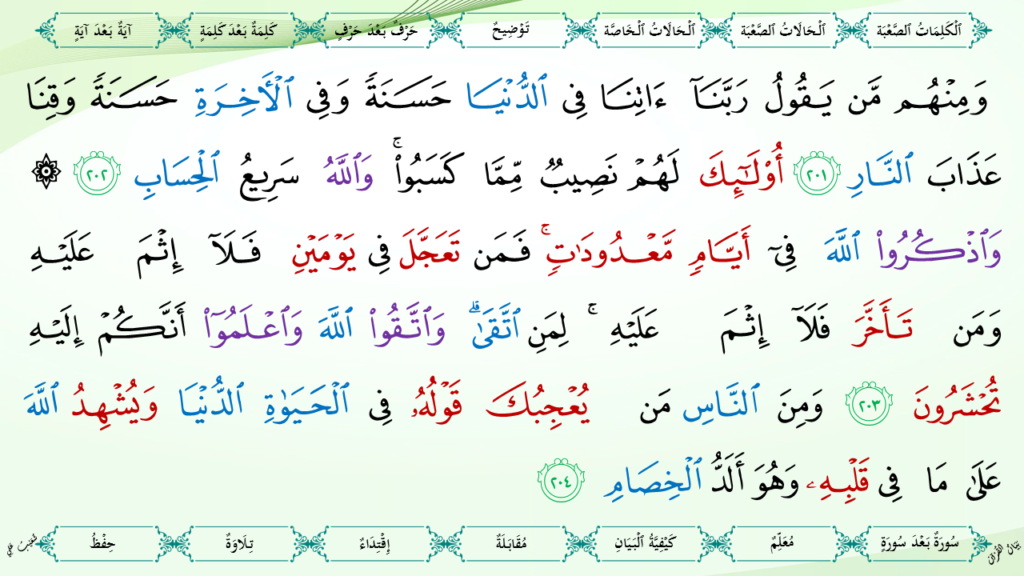 اَلْكَلِمَاتُ الصَّعْبَة	اَلْحَالَاتُ الصَّعْبَة	اَلْحَالَاتُ الْخَاصَّة	تَوْضِيحٌ	حَرْفٌ بَعْدَ حَرْفٍ	كَلِمَةٌ بَعْدَ كَلِمَةٍ	آيَةٌ بَعْدَ آيَةٍ
وَمِنْهُم مَّن يَقُولُ رَبَّنَآ ءَاتِنَا فِي ٱلدُّنْيَا حَسَنَةً وَفِي ٱلْأَخِرَةِ حَسَنَةً وَقِنَا
عَذَابَ ٱلنَّارِ ٢٠١ أُوْلَٰٓئِكَ لَهُمْ نَصِيبٌ مِّمَّا كَسَبُواْۚ وَٱللَّهُ سَرِيعُ ٱلْحِسَابِ ٢٠٢ ۞
وَٱذْكُرُواْ ٱللَّهَ فِيٓ أَيَّامٍ مَّعْدُودَٰتٍۚ فَمَن تَعَجَّلَ فِي يَوْمَيْنِ فَلَآ إِثْمَ عَلَيْهِ
وَمَن تَأَخَّرَ فَلَآ إِثْمَ عَلَيْهِ ۚ لِمَنِ ٱتَّقَىٰۗ وَٱتَّقُواْ ٱللَّهَ وَٱعْلَمُوٓاْ أَنَّكُمْ إِلَيْهِ
تُحْشَرُونَ ٢٠٣ وَمِنَ ٱلنَّاسِ مَن يُعْجِبُكَ قَوْلُهُۥ فِي ٱلْحَيَوٰةِ ٱلدُّنْيَا وَيُشْهِدُ ٱللَّهَ
عَلَىٰ مَا فِي قَلْبِهِۦ وَهُوَ أَلَدُّ ٱلْخِصَامِ ٢٠٤
سُورَةٌ بَعْدَ سُورَةٍ	مُعَلِّمٌ	كَيْفِيَّةُ الْبَيَانِ	مُقَابَلَةٌ	إِقْتِدَاءٌ	تِلَاوَةٌ	حِفْظٌ
بَيَانُ الْقُرْآنِ